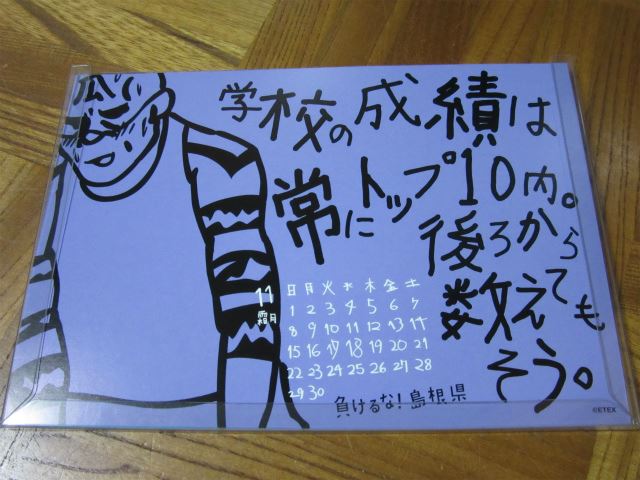 学校の成績は
常にトップ10内。
後ろから
数えても
そう。
11
霜月
日 月 火 水 木 金 土
1 2 3 4 5 6 7
8 9 10 11 12 13 14
15 16 17 18 19 20 21
22 23 24 25 26 27 28
29 30
負けるな!島根県
©ETEX